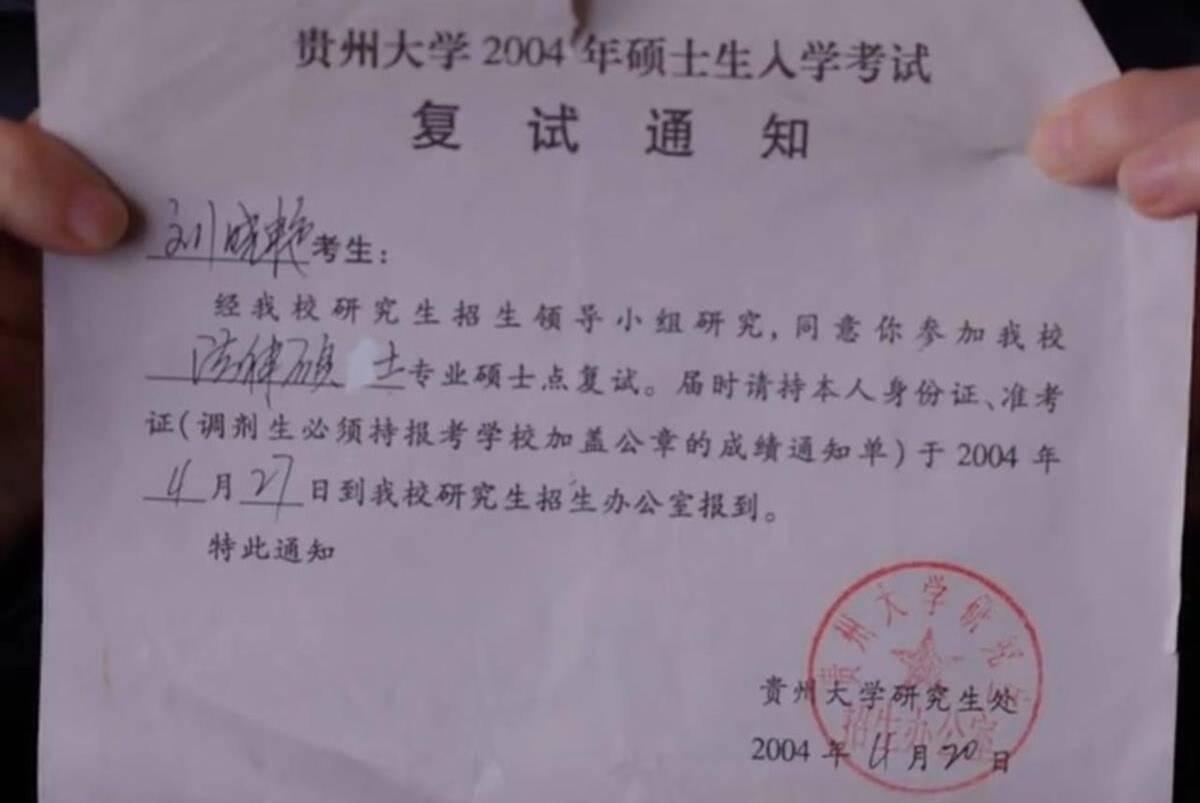 贵州大学2004年硕士生入学考试
复试通知
刘晓艳考生:
经我校研究生招生领导小组研究,同意你参加我校
法律硕士专业硕士点复试。届时请持本人身份证、准考
证(调剂生必须持报考学校加盖公章的成绩通知单)于2004年
4月27日到我校研究生招生办公室报到。
特此通知
贵州大学研究生处
2004年4月20日
贵州大学研究生
招生办公室